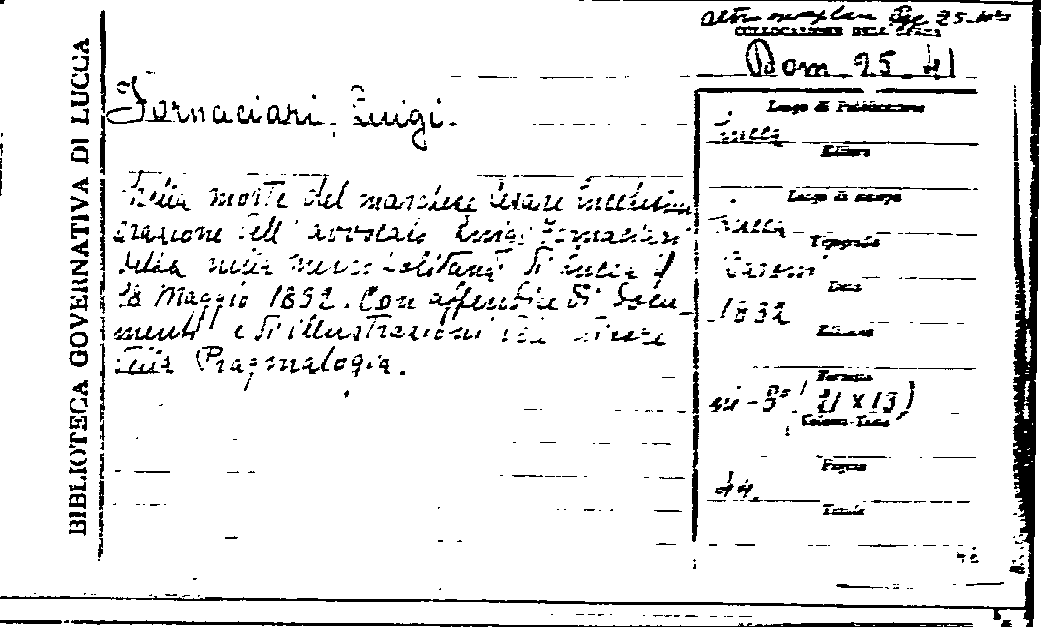 BIBLIOTECA GOVERNATIVA DI LUCCA
COLLOCAZIONE DELL'OPERA
Bom 25 41
Fornaciari, Luigi.
Nella morte del marchese Cesare Lucchesini
orazione dell' avvocato Luigi Fornaciari
detta nella metropolitana di Lucca il
28 Maggio 1832. Con appendice di docu-
menti e di illustrazioni
della Pragmalogia.
Luogo di Pubblicazione
Lucca
Editore
Luogo di stampa
Lucca
Tipografia
Data
1832
Edizione
Formato
in-8° (21 x 13)
Volume-Tomo
Pagine
44.
Tavole